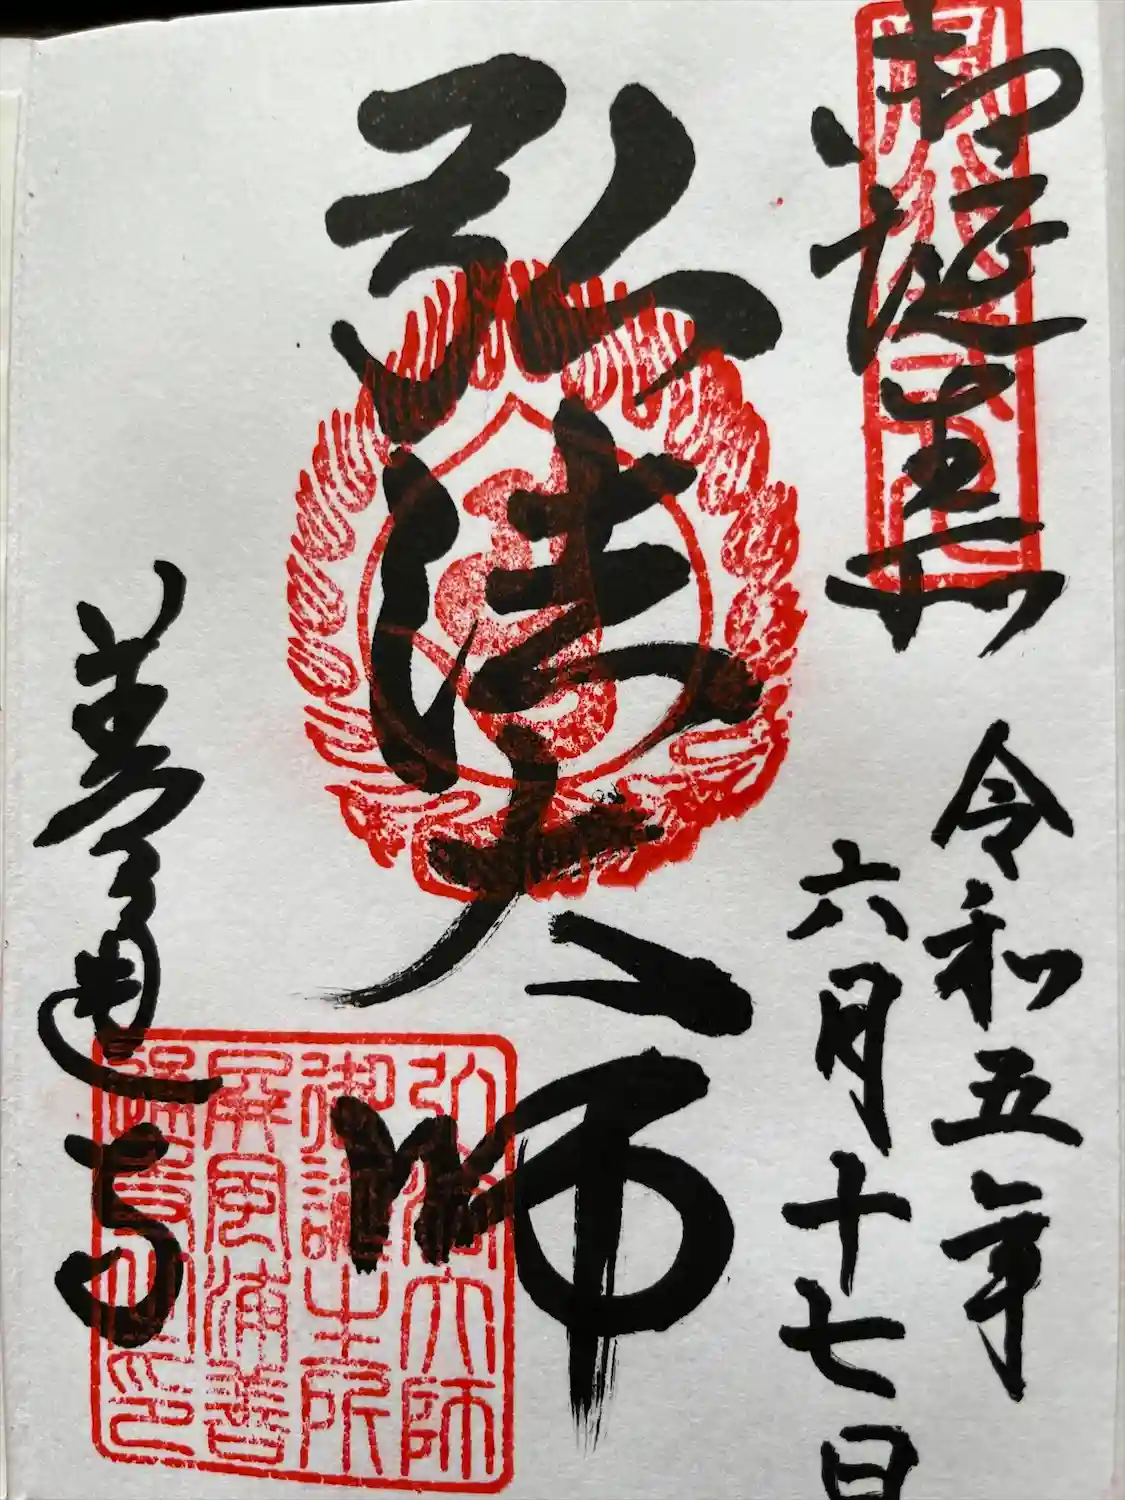 御誕生所
令和五年
六月十七日
弘法大師
善通寺
弘法大師
御誕生所
屏風浦善